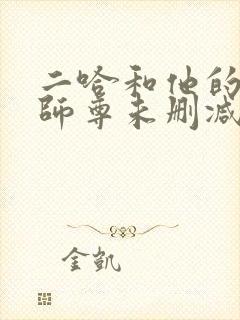 二哈和他的
师尊未删减
金凯